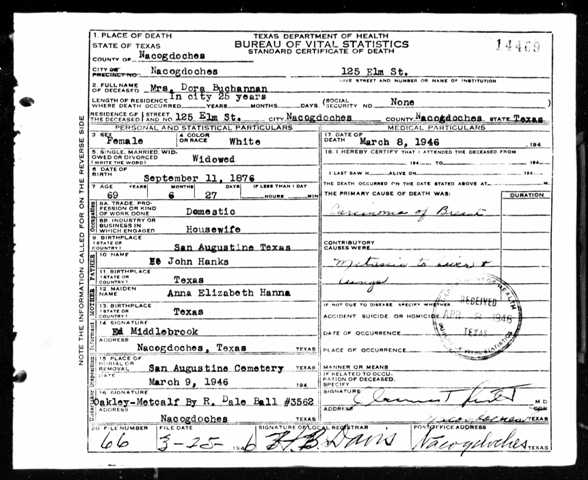 1. PLACE OF DEATH
STATE OF TEXAS
TEXAS DEPARTMENT OF HEALTH
BUREAU OF VITAL STATISTICS
STANDARD CERTIFICATE OF DEATH
14469
COUNTY OF Nacogdoches
CITY OR PRECINCT NO. Nacogdoches 125 Elm St.
GIVE STREET AND NUMBER OR NAME OF INSTITUTION
2. FULL NAME OF DECEASED Mrs. Dora Buchannan
LENGTH OF RESIDENCE WHERE DEATH OCCURRED In city 25 years YEARS MONTHS DAYS (SOCIAL SECURITY NO None
RESIDENCE OF THE DECEASED STREET AND NO 125 Elm St. CITY Nacogdoches COUNTY Nacogdoches STATE Texas
PERSONAL AND STATISTICAL PARTICULARS
MEDICAL PARTICULARS
3. SEX Female 4. COLOR OR RACE White
17. DATE OF DEATH March 8, 1946 194
5. SINGLE, MARRIED, WIDOWED OR DIVORCED (WRITE THE WORD) Widowed
18. I HEREBY CERTIFY THAT I ATTENDED THE DECEASED FROM
194 TO 194
6. DATE OF BIRTH September 11, 1876
I LAST SAW H ALIVE ON 194
THE DEATH OCCURRED ON THE DATE STATED ABOVE AT M.
7. AGE YEARS MONTHS DAYS IF LESS THAN 1 DAY
69 6 27 HOURS MIN
THE PRIMARY CAUSE OF DEATH WAS: DURATION
8A. TRADE, PROFESSION OR KIND OF WORK DONE Domestic
Carcinoma of Breast
8B. INDUSTRY OR BUSINESS IN WHICH ENGAGED Housewife
9. BIRTHPLACE (STATE OR COUNTRY) San Augustine Texas
CONTRIBUTORY CAUSES WERE:
10. NAME John Hanks
to liver &
lungs
11. BIRTHPLACE (STATE OR COUNTRY) Texas
12. MAIDEN NAME Anna Elizabeth Hanna
IF NOT DUE TO DISEASE SPECIFY WHETHER
13. BIRTHPLACE (STATE OR COUNTRY) Texas
ACCIDENT SUICIDE OR HOMICIDE
RECEIVED
APR 1946
TEXAS
14. SIGNATURE Ed Middlebrook
DATE OF OCCURRENCE
ADDRESS Nacogdoches, Texas TEXAS
PLACE OF OCCURRENCE
15. PLACE OF BURIAL OR REMOVAL San Augustine Cemetery TEXAS
MANNER OR MEANS
DATE March 9, 1946 194
IF RELATED TO OCCUPATION OF DECEASED, SPECIFY
16. SIGNATURE Oakley-Metcalf By R. Dale Ball #3562
SIGNATURE M.D.
ADDRESS Nacogdoches TEXAS
ADDRESS Nacogdoches TEXAS
20. FILE NUMBER FILE DATE SIGNATURE OF LOCAL REGISTRAR POSTOFFICE ADDRESS
66 3-25- 1946 Davis Nacogdoches TEXAS
NOTE THE INFORMATION CALLED FOR ON THE REVERSE SIDE
Occupation
FATHER
MOTHER
Informant